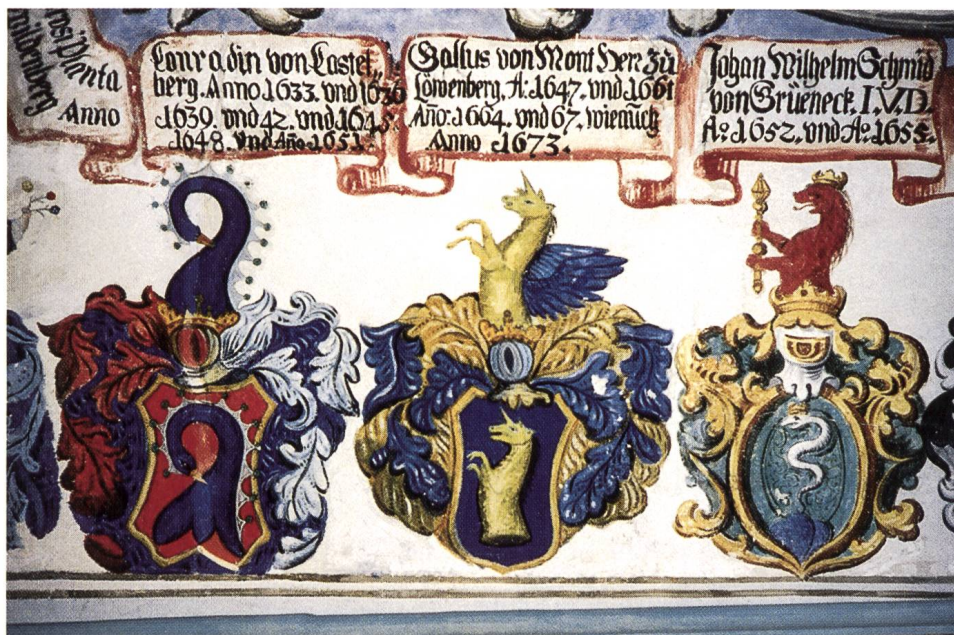 Planta
Anno
Conradin von Castel-
berg. Anno 1633. vnd 1636
1639. vnd 42. vnd 1645.
1648. vnd Año 1651.
Gallus von Mont Herr zu
Löwenberg, A: 1647. vnd 1661
Año: 1664. vnd 67. wie auch
Anno 1673.
Johan Wilhelm Schmid
von Grüeneck. I.V.D.
Aº. 1652. vnd Aº. 1655.